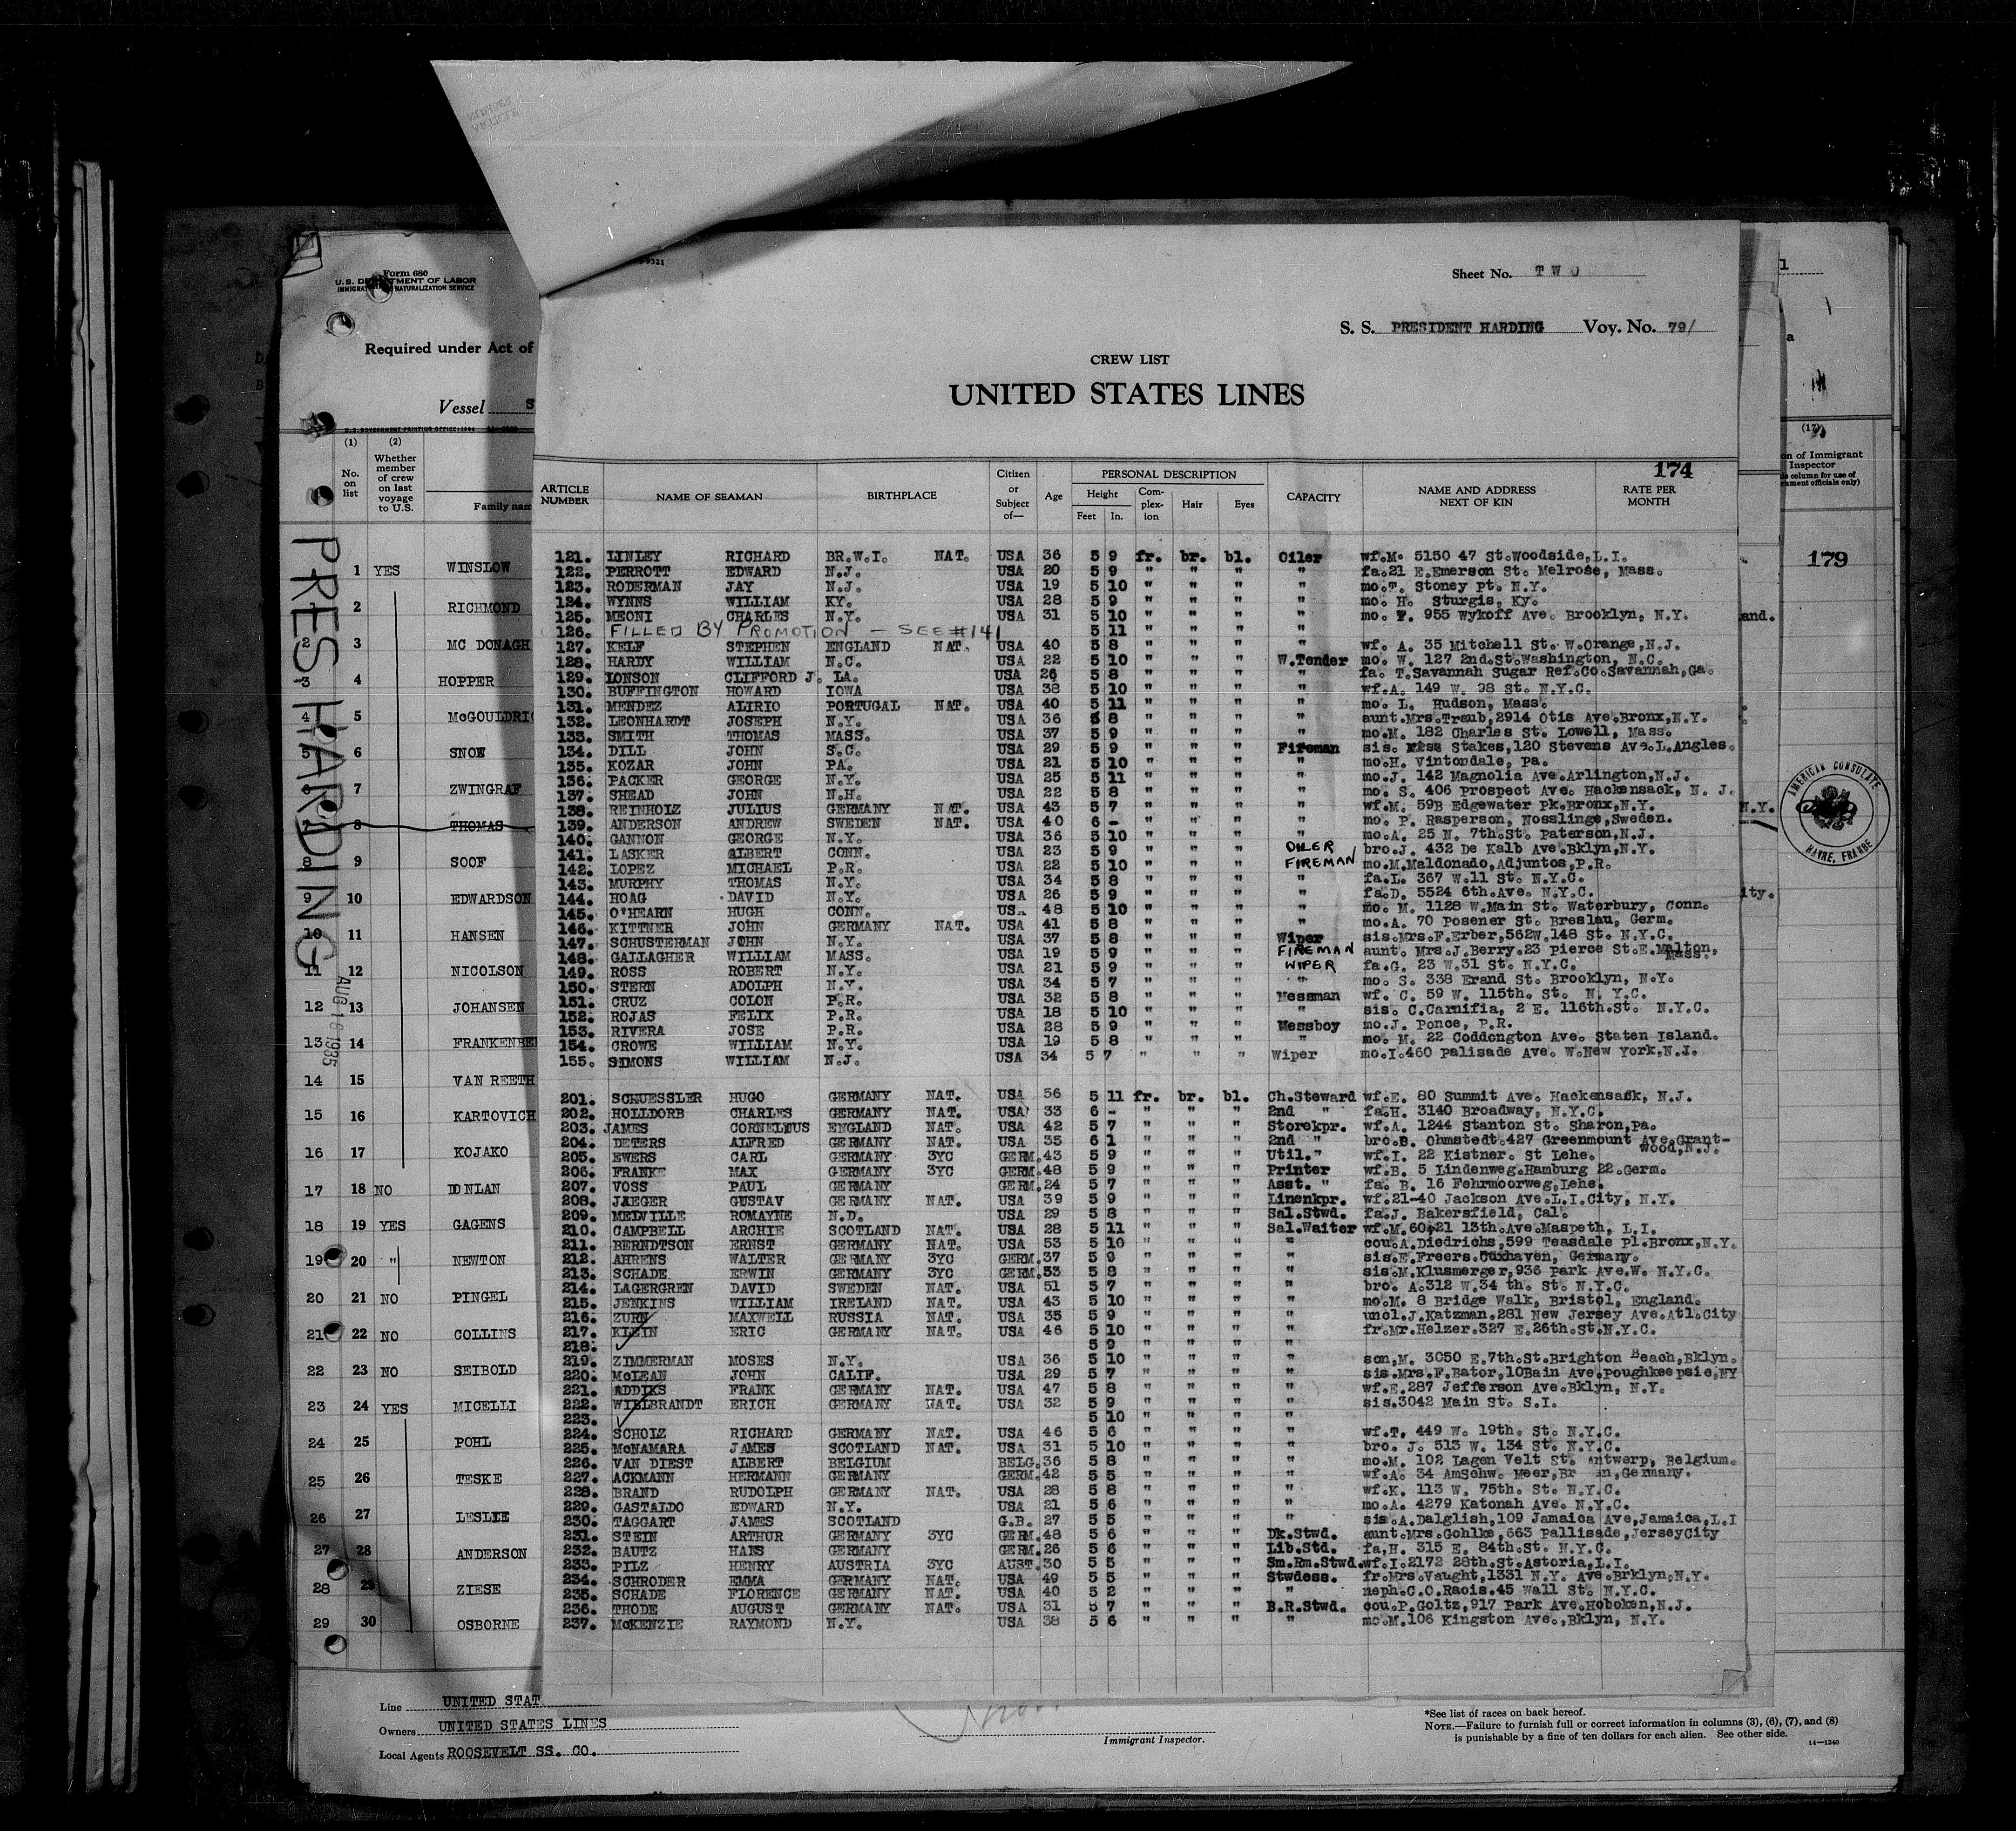 Form 680
U.S. DEPARTMENT OF LABOR
IMMIGRATION NATURALIZATION SERVICE
Required under Act of
Vessel S
U.S. GOVERNMENT PRINTING OFFICE: 1934
(1) (2)
No. on list
Whether member of crew on last voyage to U.S.
Family nam
PRES HARDING
AUG 16 1935
1 YES WINSLOW
2 RICHMOND
2 3 MC DONAGH
3 4 HOPPER
4 5 McGOULDRIC
5 6 SNOW
6 7 ZWINGRAF
7 8 THOMAS
8 9 SOOF
9 10 EDWARDSON
10 11 HANSEN
11 12 NICOLSON
12 13 JOHANSEN
13 14 FRANKENBE
14 15 VAN REETH
15 16 KARTOVICH
16 17 KOJAKO
17 18 NO DONLAN
18 19 YES GAGENS
19 20 " NEWTON
20 21 NO PINGEL
21 22 NO COLLINS
22 23 NO SEIBOLD
23 24 YES MICELLI
24 25 POHL
25 26 TESKE
26 27 LESLIE
27 28 ANDERSON
28 29 ZIESE
29 30 OSBORNE
Line UNITED STAT
Owners UNITED STATES LINES
Local Agents ROOSEVELT SS. CO.
Immigrant Inspector.
*See list of races on back hereof.
NOTE.—Failure to furnish full or correct information in columns (3), (6), (7), and (8)
is punishable by a fine of ten dollars for each alien. See other side.
14—1240
ARTICLE
NUMBER
-9321
Sheet No. TWO
S. S. PRESIDENT HARDING Voy. No. 79/
CREW LIST
UNITED STATES LINES
174
ARTICLE NUMBER NAME OF SEAMAN BIRTHPLACE Citizen or Subject of— Age PERSONAL DESCRIPTION Height Feet In. Complexion Hair Eyes CAPACITY NAME AND ADDRESS NEXT OF KIN RATE PER MONTH
121. LINLEY RICHARD BR.W.I. NAT. USA 36 5 9 fr. br. bl. Oiler wf.M. 5150 47 St.Woodside,L.I.
122. PERROTT EDWARD N.J. USA 20 5 9 " " " " fa.21 E.Emerson St. Melrose, Mass.
123. RODERMAN JAY N.J. USA 19 5 10 " " " " mo.T. Stoney Pt. N.Y.
124. WYNNS WILLIAM KY. USA 28 5 9 " " " " mo. H. Sturgis, Ky.
125. MEONI CHARLES N.Y. USA 31 5 10 " " " " mo. P. 955 Wykoff Ave. Brooklyn, N.Y.
126. FILLED BY PROMOTION — SEE #141 5 11 " " " "
127. KELF STEPHEN ENGLAND NAT. USA 40 5 8 " " " " wf. A. 35 Mitchell St. W.Orange,N.J.
128. HARDY WILLIAM N.C. USA 22 5 10 " " " W.Tender mo. W. 127 2nd.St.Washington, N.C.
129. IONSON CLIFFORD J. LA. USA 26 5 8 " " " " fa. T.Savannah Sugar Ref.Co.Savannah,Ga.
130. BUFFINGTON HOWARD IOWA USA 38 5 10 " " " " wf.A. 149 W. 98 St. N.Y.C.
131. MENDEZ ALIRIO PORTUGAL NAT. USA 40 5 11 " " " " mo. L. Hudson, Mass.
132. LEONHARDT JOSEPH N.Y. USA 36 5 8 " " " " aunt.Mrs.Traub,2914 Otis Ave.Bronx,N.Y.
133. SMITH THOMAS MASS. USA 37 5 9 " " " " mo.M. 182 Charles St. Lowell, Mass.
134. DILL JOHN S.C. USA 29 5 9 " " " Fireman sis. Miss Stakes,120 Stevens Ave.L.Angles.
135. KOZAR JOHN PA. USA 21 5 10 " " " " mo.H. Vintondale, Pa.
136. PACKER GEORGE N.Y. USA 25 5 11 " " " " mo.J. 142 Magnolia Ave.Arlington,N.J.
137. SHEAD JOHN N.H. USA 22 5 8 " " " " mo. S. 406 Prospect Ave. Hackensack, N. J.
138. REINHOLZ JULIUS GERMANY NAT. USA 43 5 7 " " " " wf.M. 59B Edgewater Pk.Bronx,N.Y.
139. ANDERSON ANDREW SWEDEN NAT. USA 40 6 - " " " " mo. P. Rasperson, Nosslinge,Sweden.
140. GANNON GEORGE N.Y. USA 36 5 10 " " " " mo.A. 25 N. 7th.St. Paterson,N.J.
141. LASKER ALBERT CONN. USA 23 5 9 " " " OILER bro.J. 432 De Kalb Ave.Bklyn,N.Y.
142. LOPEZ MICHAEL P.R. USA 22 5 10 " " " FIREMAN mo.M.Maldonado,Adjuntos,P.R.
143. MURPHY THOMAS N.Y. USA 34 5 8 " " " " fa.L. 367 W.11 St. N.Y.C.
144. HOAG DAVID N.Y. USA 26 5 9 " " " " fa.D. 5524 6th.Ave. N.Y.C.
145. O'HEARN HUGH CONN. US. 48 5 10 " " " " mo. M. 1128 W.Main St. Waterbury, Conn.
146. KITTNER JOHN GERMANY NAT. USA 41 5 8 " " " " mo.A. 70 Posener St. Breslau, Germ.
147. SCHUSTERMAN JOHN N.Y. USA 37 5 8 " " " Wiper sis.Mrs.F.Erber,562W.148 St. N.Y.C.
148. GALLAGHER WILLIAM MASS. USA 19 5 9 " " " FIREMAN aunt. Mrs.J.Berry.23 Pierce St.E.Malton, Mass.
149. ROSS ROBERT N.Y. USA 21 5 9 " " " WIPER fa.G. 23 W.31 St. N.Y.C.
150. STERN ADOLPH N.Y. USA 34 5 7 " " " " mo. S. 338 Erand St. Brooklyn, N.Y.
151. CRUZ COLON P.R. USA 32 5 8 " " " Messman wf. C. 59 W. 115th. St. N. Y.C.
152. ROJAS FELIX P.R. USA 18 5 10 " " " " sis. C.Carnifia, 2 E. 116th.St. N.Y.C.
153. RIVERA JOSE P.R. USA 28 5 9 " " " Messboy mo.J. Ponce, P.R.
154. CROWE WILLIAM N.Y. USA 19 5 8 " " " " mo. M. 22 Coddongton Ave. Staten Island.
155. SIMONS WILLIAM N.J. USA 34 5 7 " " " Wiper mo.I.460 Palisade Ave. W.New York,N.J.
201. SCHUESSLER HUGO GERMANY NAT. USA 56 5 11 fr. br. bl. Ch.Steward wf.E. 80 Summit Ave. Hackensack, N.J.
202. HOLLDORB CHARLES GERMANY NAT. USA 33 6 - " " " 2nd " fa.H. 3140 Broadway, N.Y.C.
203. JAMES CORNELIUS ENGLAND NAT. USA 42 5 7 " " " Storekpr. wf.A. 1244 Stanton St. Sharon,Pa.
204. DETERS ALFRED GERMANY NAT. USA 35 6 1 " " " 2nd " bro.B. Ohmstedt.427 Greenmount Ave.Grant-Wood,N.J.
205. EWERS CARL GERMANY 3YC GERM. 43 5 9 " " " Util." wf.I. 22 Kistner. St Lehe.
206. FRANKE MAX GERMANY 3YC GERM. 48 5 9 " " " Printer wf.B. 5 Lindenweg.Hamburg 22.Germ.
207. VOSS PAUL GERMANY GERM. 24 5 7 " " " Asst. " fa. B. 16 Fehrmoorweg,Lehe.
208. JAEGER GUSTAV GERMANY NAT. USA 39 5 9 " " " Linenkpr. wf.21-40 Jackson Ave.L.I.City, N.Y.
209. MELVILLE ROMAYNE N.D. USA 29 5 8 " " " Sal.Stwd. fa.J. Bakersfield, Cal.
210. CAMPBELL ARCHIE SCOTLAND NAT. USA 28 5 11 " " " Sal.Waiter wf.M.60-21 13th.Ave.Maspeth, L.I.
211. BERNDTSON ERNST GERMANY NAT. USA 53 5 10 " " " " cou.A.Diedrichs,599 Teasdale Pl.Bronx,N.Y.
212. AHRENS WALTER GERMANY 3YC GERM. 37 5 9 " " " " sis.E.Freers.Cuxhaven, Germany.
213. SCHADE ERWIN GERMANY 3YC GERM. 53 5 8 " " " " sis.M.Klusmerger,936 Park Ave.W. N.Y.C.
214. LAGERGREN DAVID SWEDEN NAT. USA 51 5 7 " " " " bro. A.312 W.34 th. St. N.Y.C.
215. JENKINS WILLIAM IRELAND NAT. USA 43 5 10 " " " " mo.M. 8 Bridge Walk, Bristol, England.
216. ZURN MAXWELL RUSSIA NAT. USA 35 5 9 " " " " uncl.J.Katzman.281 New Jersey Ave.Atl.City
217. KLEIN ERIC GERMANY NAT. USA 46 5 10 " " " " fr.Mr.Helzer.327 E.26th.St.N.Y.C.
218. 5 9 " " " "
219. ZIMMERMAN MOSES N.Y. USA 36 5 10 " " " " son,M. 3050 E.7th.St.Brighton Beach,Bklyn.
220. McLEAN JOHN CALIF. USA 29 5 7 " " " " sis.Mrs.F.Bator,10Bain Ave.Poughkeepsie,NY
221. ADDIKS FRANK GERMANY NAT. USA 47 5 8 " " " " wf.E.287 Jefferson Ave.Bklyn, N.Y.
222. WILLBRANDT ERICH GERMANY NAT. USA 32 5 9 " " " " sis.3042 Main St. S.I.
223. 5 10 " " "
224. SCHOLZ RICHARD GERMANY NAT. USA 46 5 6 " " " " wf.T. 449 W. 19th. St. N.Y.C.
225. McNAMARA JAMES SCOTLAND NAT. USA 31 5 10 " " " " bro. J. 513 W. 134 St. N.Y.C.
226. VAN DIEST ALBERT BELGIUM BELG. 36 5 8 " " " " mo.M. 102 Lagen Velt St. Antwerp, Belgium.
227. ACKMANN HERMANN GERMANY GERM. 42 5 5 " " " " wf.A. 34 AmSchw. Meer,Br en,Germany.
228. BRAND RUDOLPH GERMANY NAT. USA 28 5 8 " " " " wf.K. 113 W. 75th. St. N.Y.C.
229. GASTALDO EDWARD N.Y. USA 21 5 6 " " " " mo.A. 4279 Katonah Ave. N.Y.C.
230. TAGGART JAMES SCOTLAND G.B. 27 5 5 " " " " sis.A.Dalglish,109 Jamaica Ave,Jamaica,L.I
231. STEIN ARTHUR GERMANY 3YC GERM. 48 5 6 " " " Dk.Stwd. aunt.Mrs.Gohlke,663 Pallisade,JerseyCity
232. BAUTZ HANS GERMANY GERM. 26 5 6 " " " Lib.Std. fa,H. 315 E. 84th.St. N.Y.C.
233. PILZ HENRY AUSTRIA 3YC AUST. 30 5 5 " " " Sm.Rm.Stwd. wf.I.2172 28th.St.Astoria,L.I.
234. SCHRODER EMMA GERMANY NAT. USA 49 5 5 " " " Stwdess. fr.Mrs.Vaught,1331 N.Y. Ave.Brklyn,N.Y.
235. SCHADE FLORENCE GERMANY NAT. USA 40 5 2 " " " " neph.C.O.Raois.45 Wall St. N.Y.C.
236. THODE AUGUST GERMANY NAT. USA 31 5 7 " " " B.R.Stwd. cou.P.Goltz,917 Park Ave.Hoboken,N.J.
237. McKENZIE RAYMOND N.Y. USA 38 5 6 " " " " mo.M.106 Kingston Ave.,Bklyn, N.Y.
1
a
(17)
on of Immigrant
Inspector
column for use of
ment officials only)
179
and.
N.Y.
ity.
AMERICAN CONSULATE
HAVRE, FRANCE